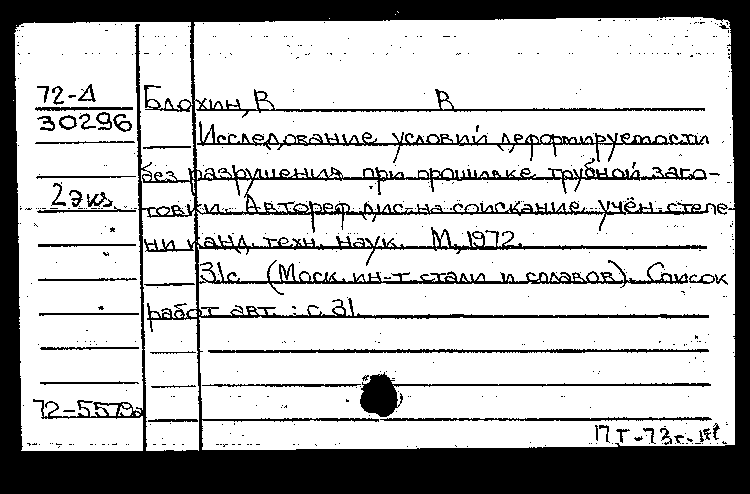 72-Д
30296
2 экз.
Блохин, В В
Исследование условий деформируемости
без разрушения при прошивке трубной заго-
товки. Автореф. дис. на соискание учён. степе-
ни канд. техн. наук. М., 1972.
31с (Моск. ин-т стали и сплавов). Список
работ авт.: с 31.
ПТ-73г.